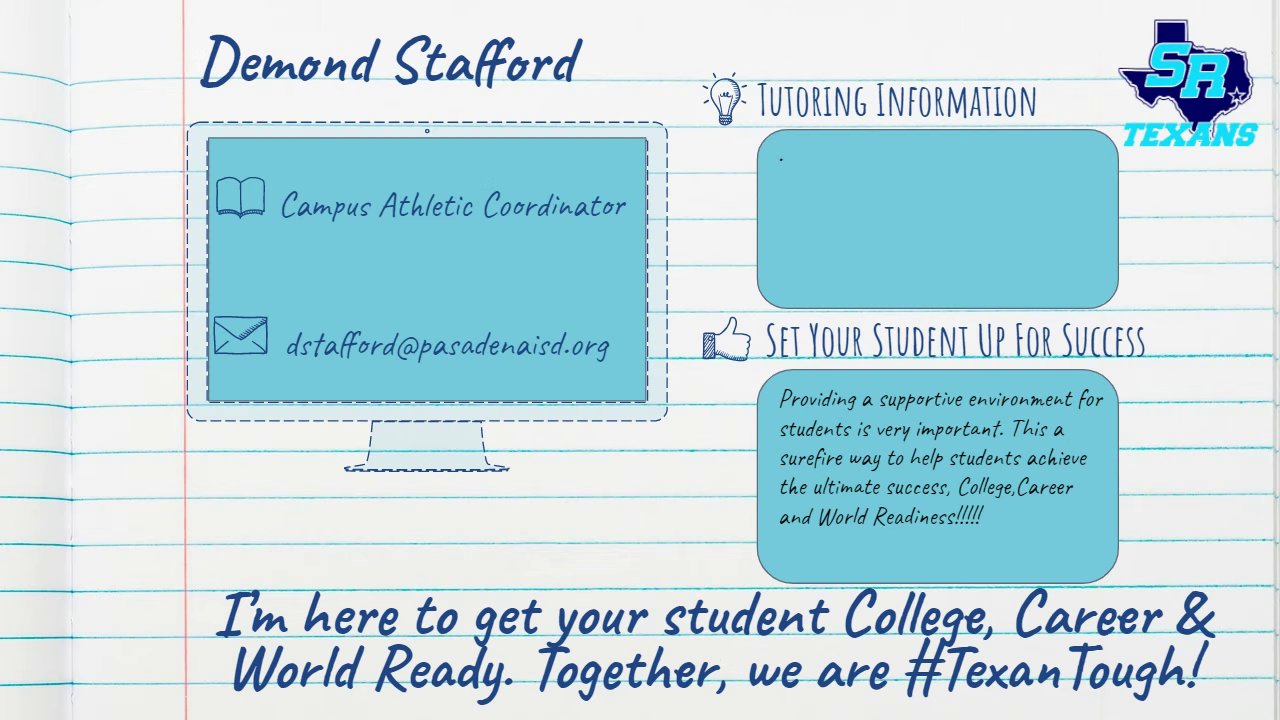 Demond Stafford
SR
TEXANS
Campus Athletic Coordinator
dstafford@pasadenaisd.org
TUTORING INFORMATION
.
SET YOUR STUDENT UP FOR SUCCESS
Providing a supportive environment for
students is very important. This a
surefire way to help students achieve
the ultimate success, College,Career
and World Readiness!!!!!
I'm here to get your student College, Career &
World Ready. Together, we are #TexanTough!